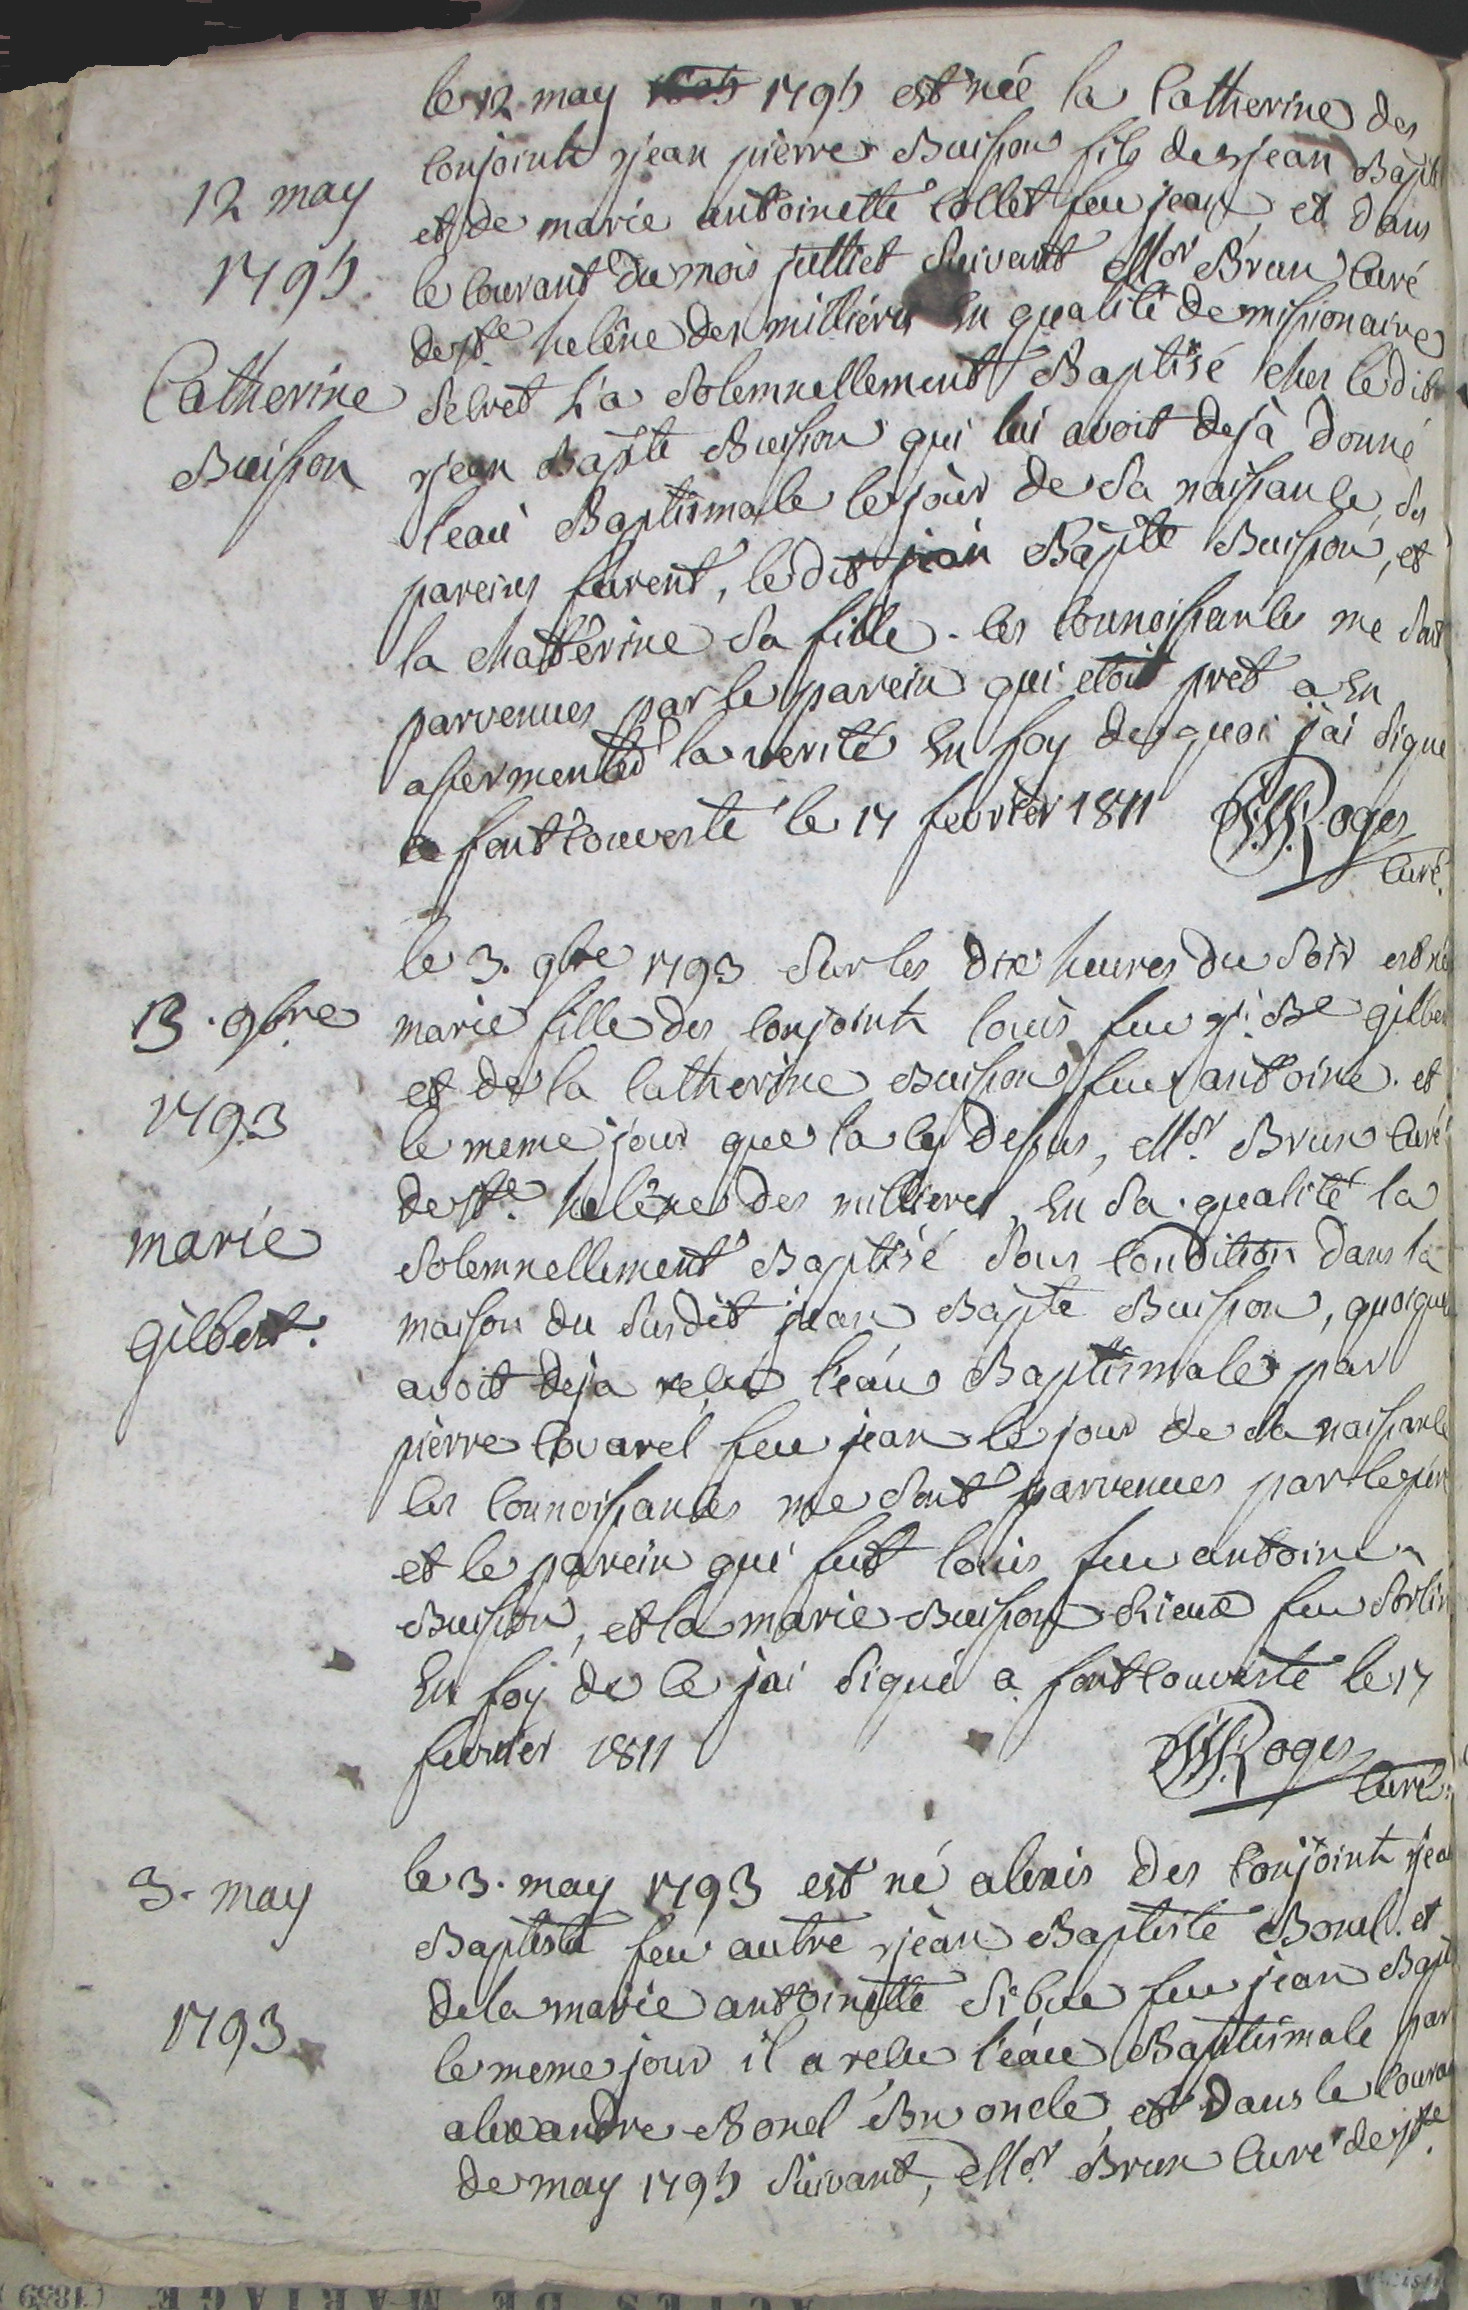 le 12 may 1795 est née la Catherine des
12 may
1795
Catherine
Buisson
conjoints jean pierre Buisson fils de jean Bapte
et de marie antoinette Collet feu jean, et dans
le courant du mois julliet suivant Mr Brun curé
de Ste helêne des milliéres en qualité de missionaire
secret l'a solemnellement Baptisé ches le dit
jean Bapte Buisson qui lui avoit dejà donné
l'eau Baptismale le jour de sa naissance, ses
pareins furent, le dit jean Bapte Buisson, et
la chatherine sa fille. les connoissances me sont
parvenues par le parein qui etoit pret a en
assermenter la verité en foy de quoi j'ai signé
a fontcouverte le 17 fevrier 1811 Roges
curé.
13. 9bre
1793
marie
gilbert.
le 3. 9bre 1793 sur les dix heures du soir est née
marie fille des conjoints louis feu j. Be gilbert
et de la Catherine Buisson feu antoine. et
le meme jour que la cy dessus, Mr. Brun curé
de Ste. helêne des millieres, en sa qualité la
solemnellement Baptisé sous condition dans la
maison du susdit jean Bapte Buisson, quoique
avoit deja reçue l'eau Baptismale par
pierre Covarel feu jean le jour de sa naissance
les connoissances me sont parvenues par le père
et le parein qui fut louis feu antoine
Buisson, et la marie Buisson Rieux feu Sorlin
En foy de ce j'ai signé a fontcouverte le 17
fevrier 1811 Roges
curé.
3. may
1793
le 3. may 1793 est né alexis des conjoints jean
Baptiste feu autre jean Baptiste Bonel. et
de la marie antoinette Sibue feu jean Bapte
le meme jour il a reçu l'eau Baptismale par
alexandre Bonel son oncle, et dans le courant
de may 1795 suivant, Mr. Brun curé de Ste.
ACTES DE MARIAGE (1839